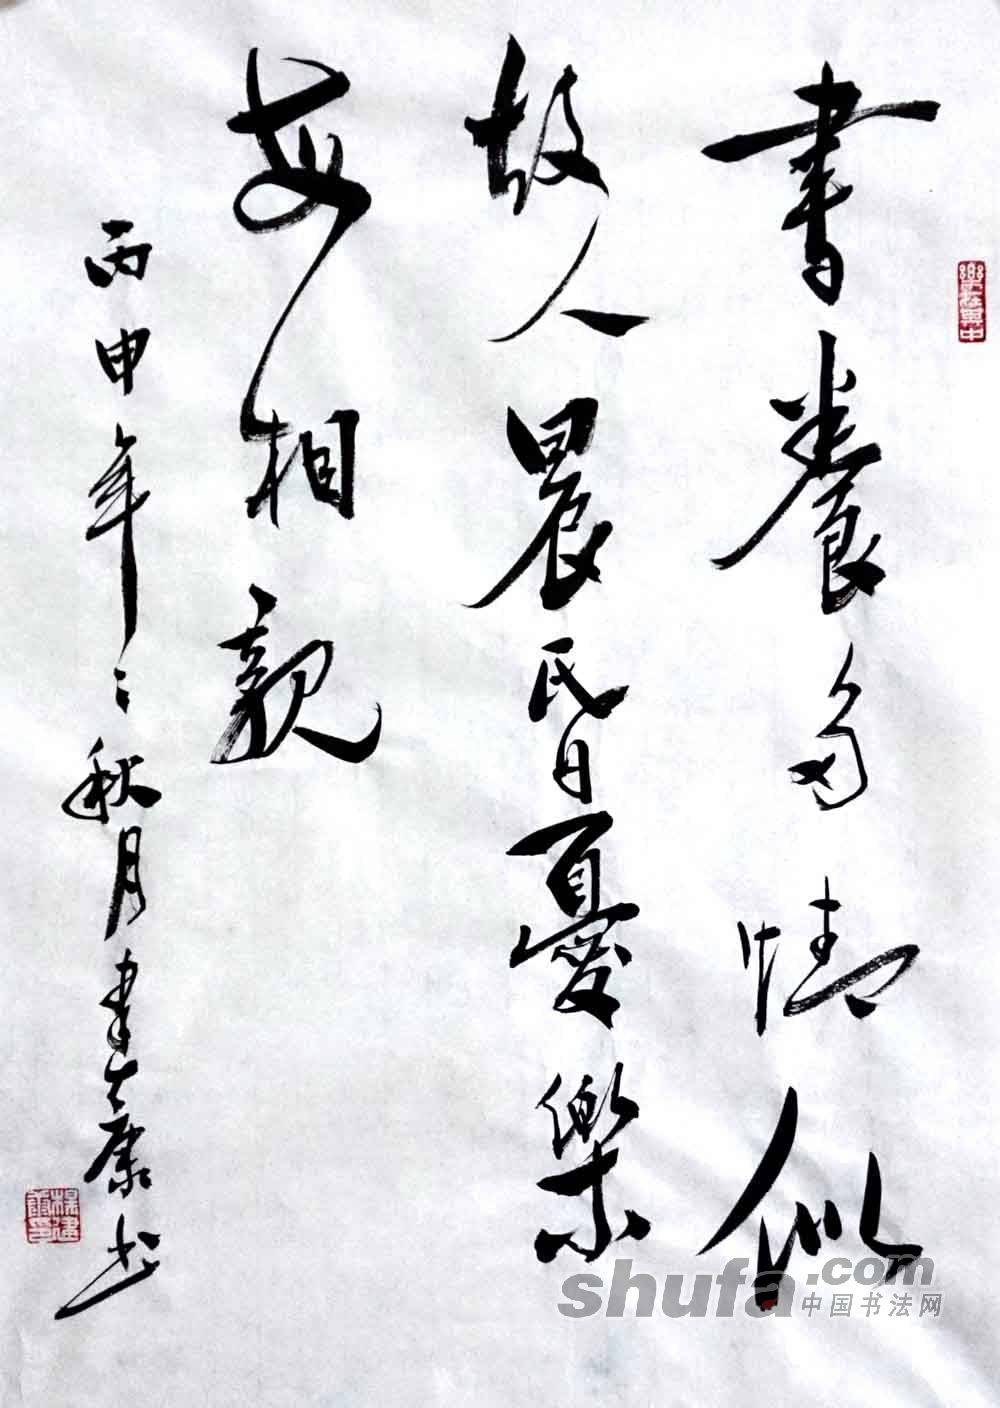 樂在其中
書養多情似
故人晨昏憂樂
每相親
丙申年之秋月建康书
shufa.com
中国书法网